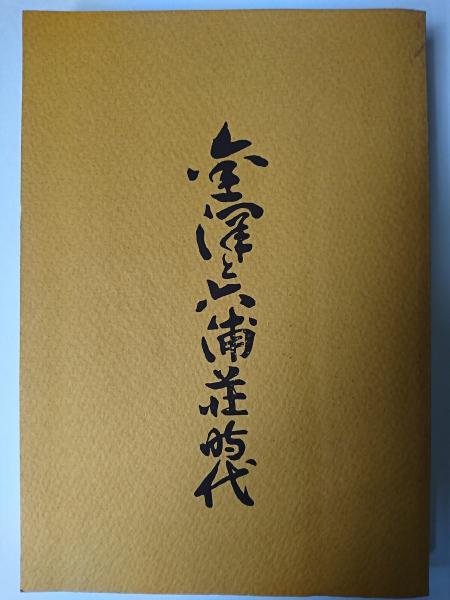 金澤と六浦荘時代